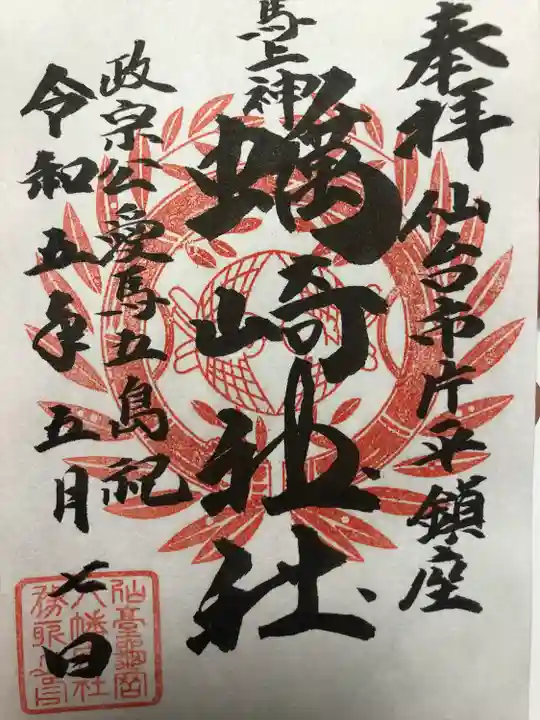 奉拝
仙台市片平鎮座
馬上神
蛎崎神社
政宗公愛馬五島祀
令和五年五月七日
仙臺龜岡
八幡神社
務所之印